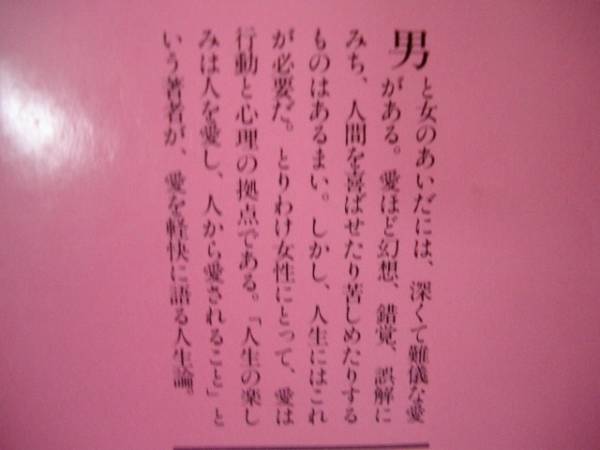 男と女のあいだには、深くて難儀な愛
がある。愛ほど幻想、錯覚、誤解に
みち、人間を喜ばせたり苦しめたりする
ものはあるまい。しかし、人生にはこれ
が必要だ。とりわけ女性にとって、愛は
行動と心理の拠点である。「人生の楽し
みは人を愛し、人から愛されること」と
いう著者が、愛を軽快に語る人生論。